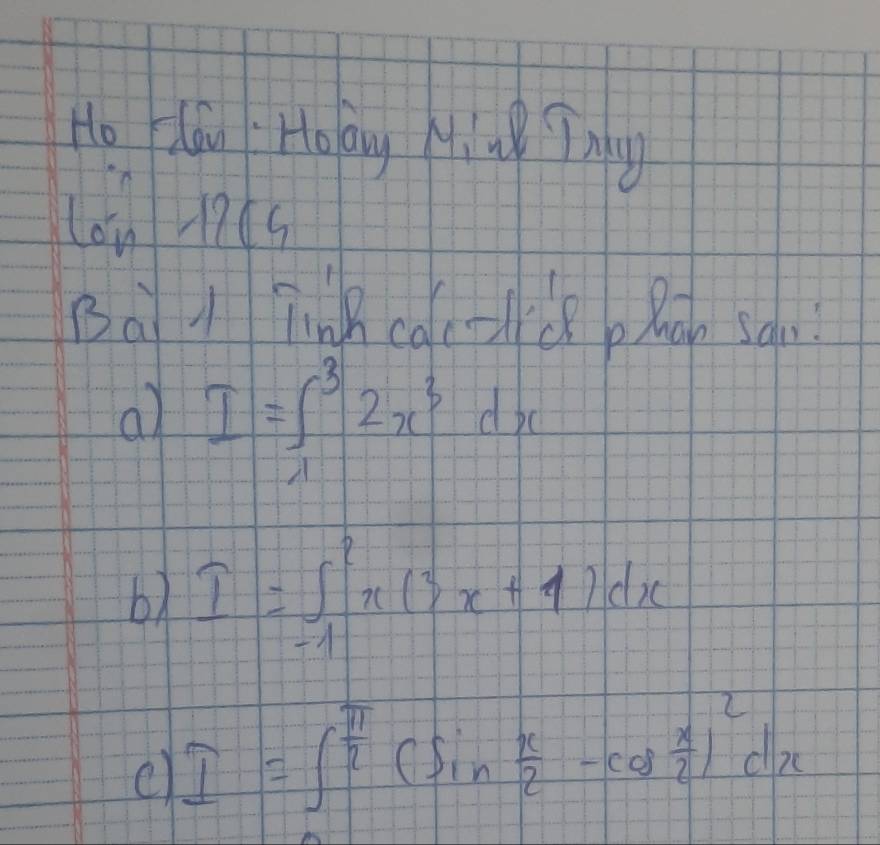 Họ tên: Hoàng Minh Truy
Lớp 12C5
Bài 1 Tính các tích phân sau:
a) I = ∫₁³ 2x³ dx
b) I = ∫₋₁² x(3x + 1)dx
c) I = ∫₀^(π/2) (sin x/2 - cos x/2)² dx